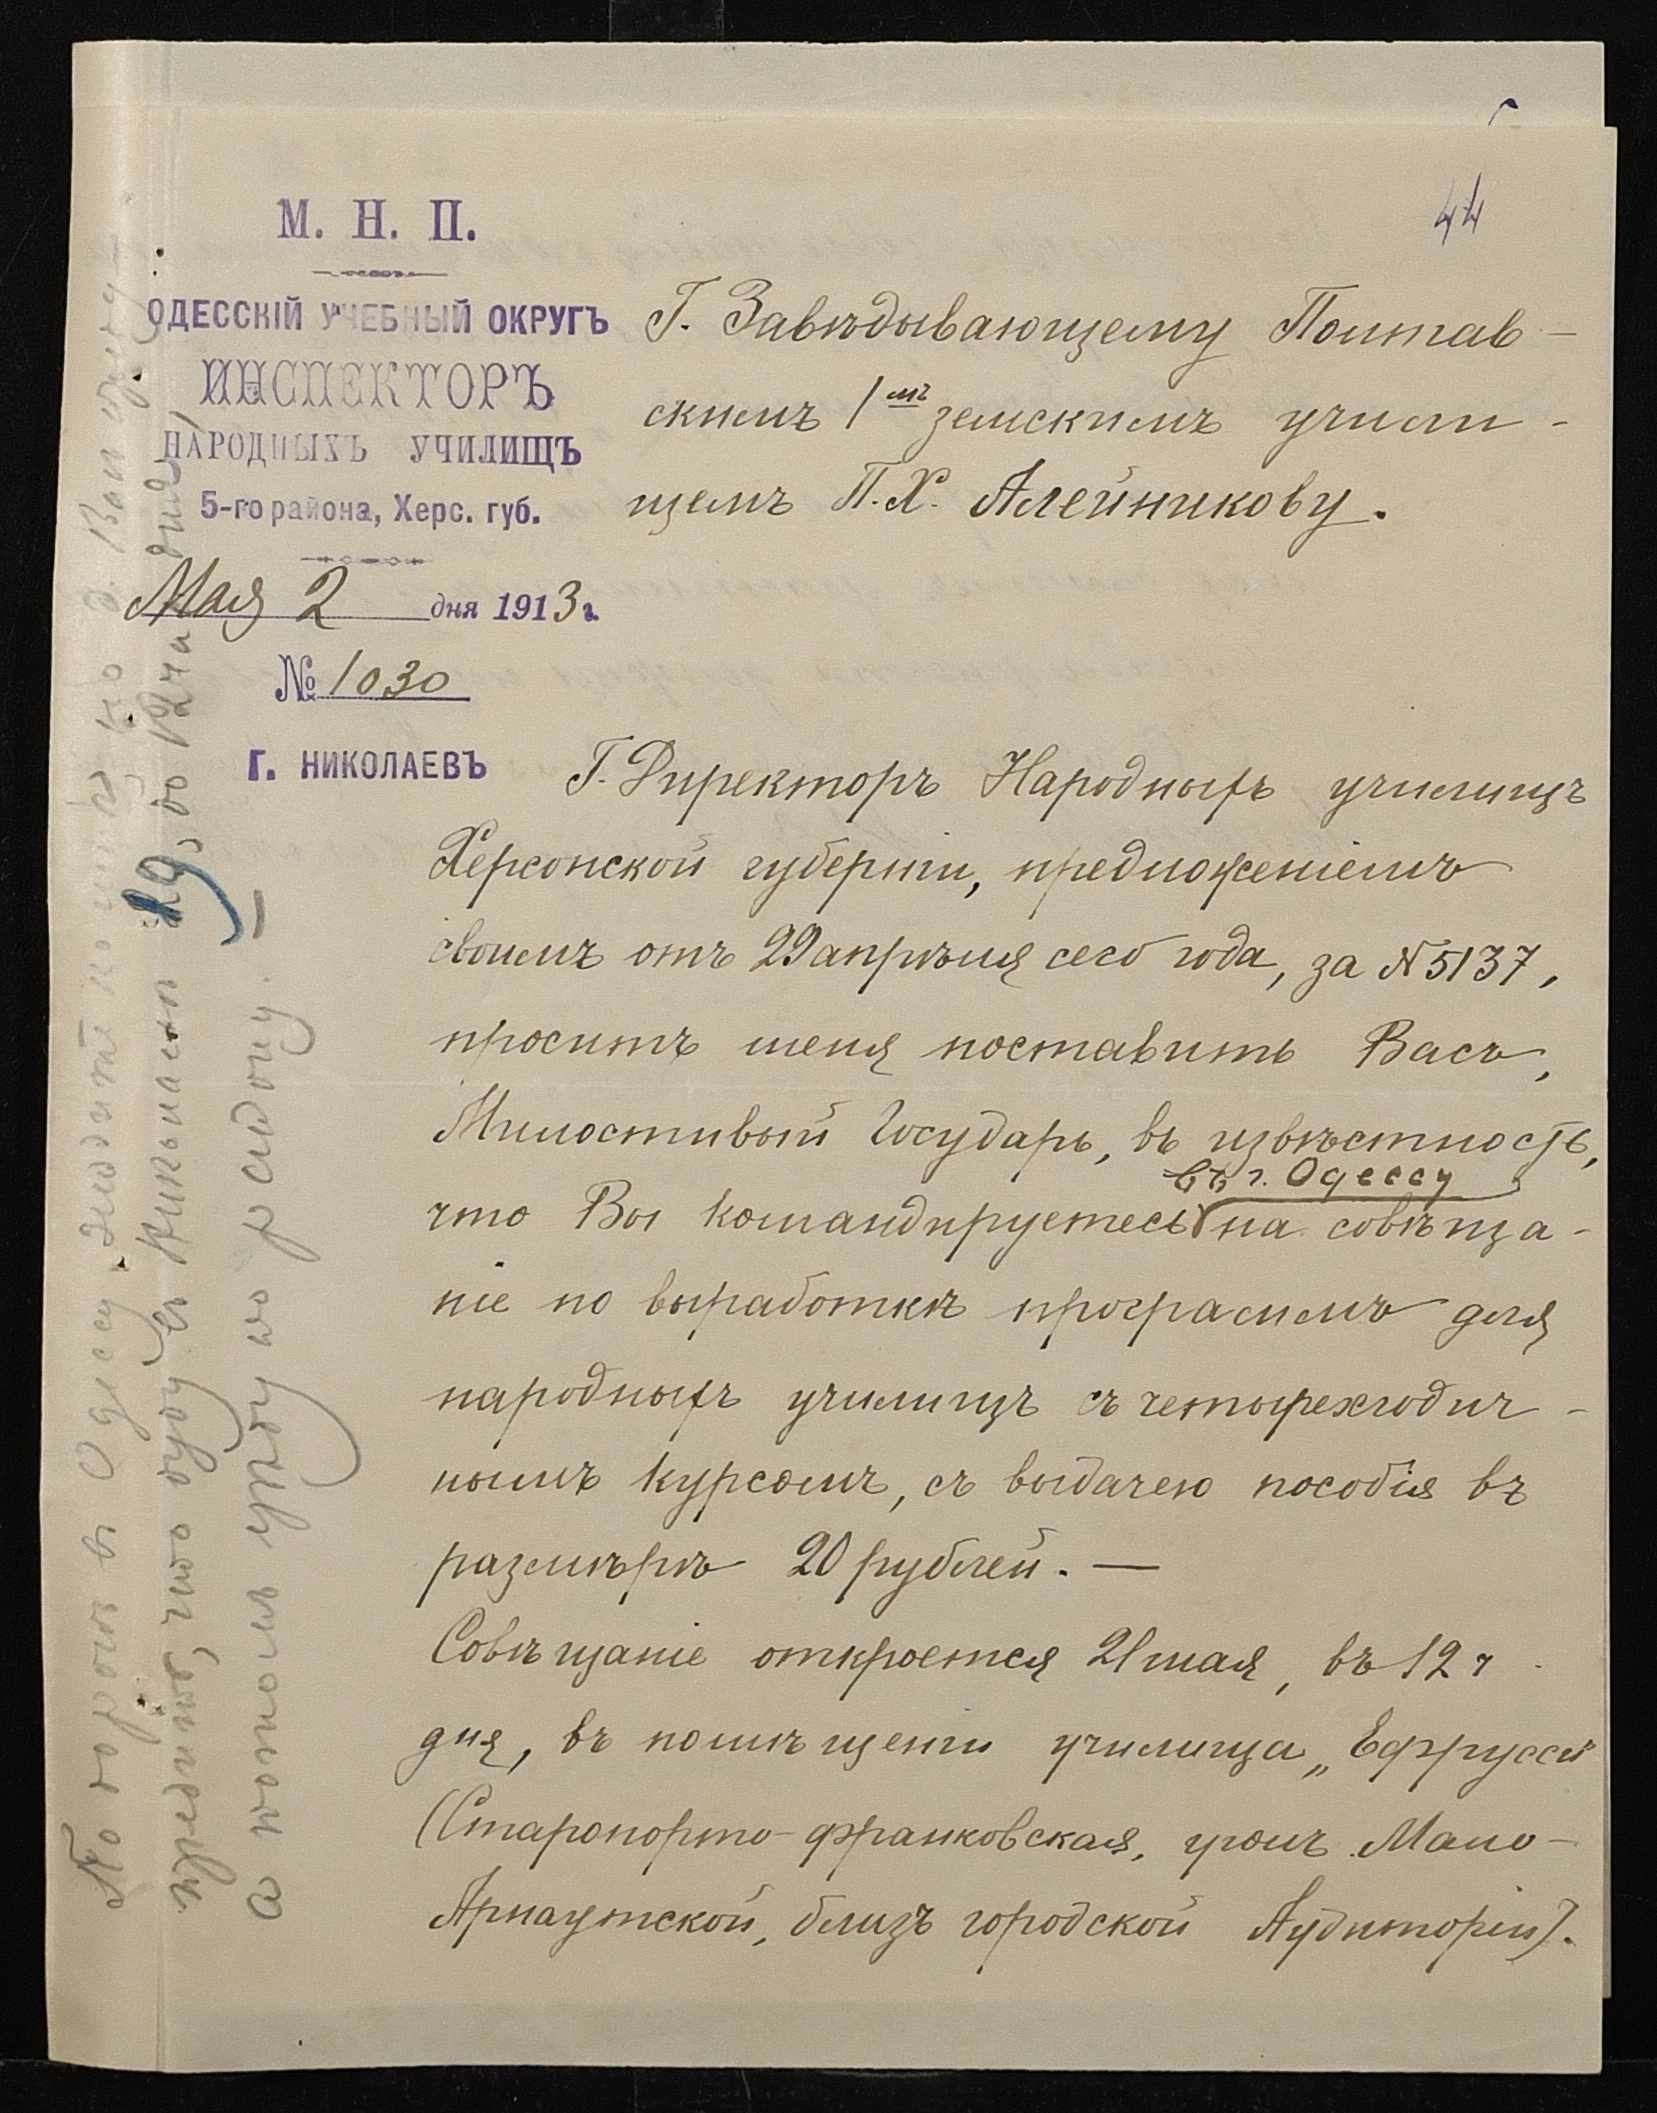 44
М. Н. П.
ОДЕССКІЙ УЧЕБНЫЙ ОКРУГЪ
ИНСПЕКТОРЪ
НАРОДНЫХЪ УЧИЛИЩЪ
5-го района, Херс. губ.
Мая 2 дня 1913 г.
№ 1030
Г. НИКОЛАЕВЪ
Г. Завѣдывающему Полтав-
скимъ 1мъ земскимъ учили-
щемъ П. Х. Алейникову.
Г. Директоръ Народныхъ училищъ
Херсонской губерніи, предложеніемъ
своимъ отъ 29 апрѣля сего года, за № 5137,
проситъ меня поставить Васъ,
Милостивый Государь, въ извѣстность,
въ г. Одессу
что Вы командируетесь на совѣща-
ніе по выработкѣ программъ для
народныхъ училищъ съ четырехгодич-
нымъ курсомъ, съ выдачею пособія въ
размѣрѣ 20 рублей. —
Совѣщаніе откроется 21 мая, въ 12 ч.
дня, въ помѣщеніи училища „Ефрусси"
(Старопорто-франковская, уголъ Мало-
Арнаутской, близъ городской Аудиторіи).
По дорогѣ въ Одессу
что буду въ Николаевѣ 19, до 12 ча дня,
а потомъ уѣду по району.